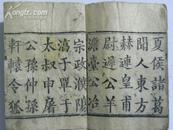 夏侯諸葛
聞人東方
赫連皇甫
尉遲公羊
澹臺公冶
宗政濮陽
淳于單于
太叔申屠
公孫仲孫
軒轅令狐